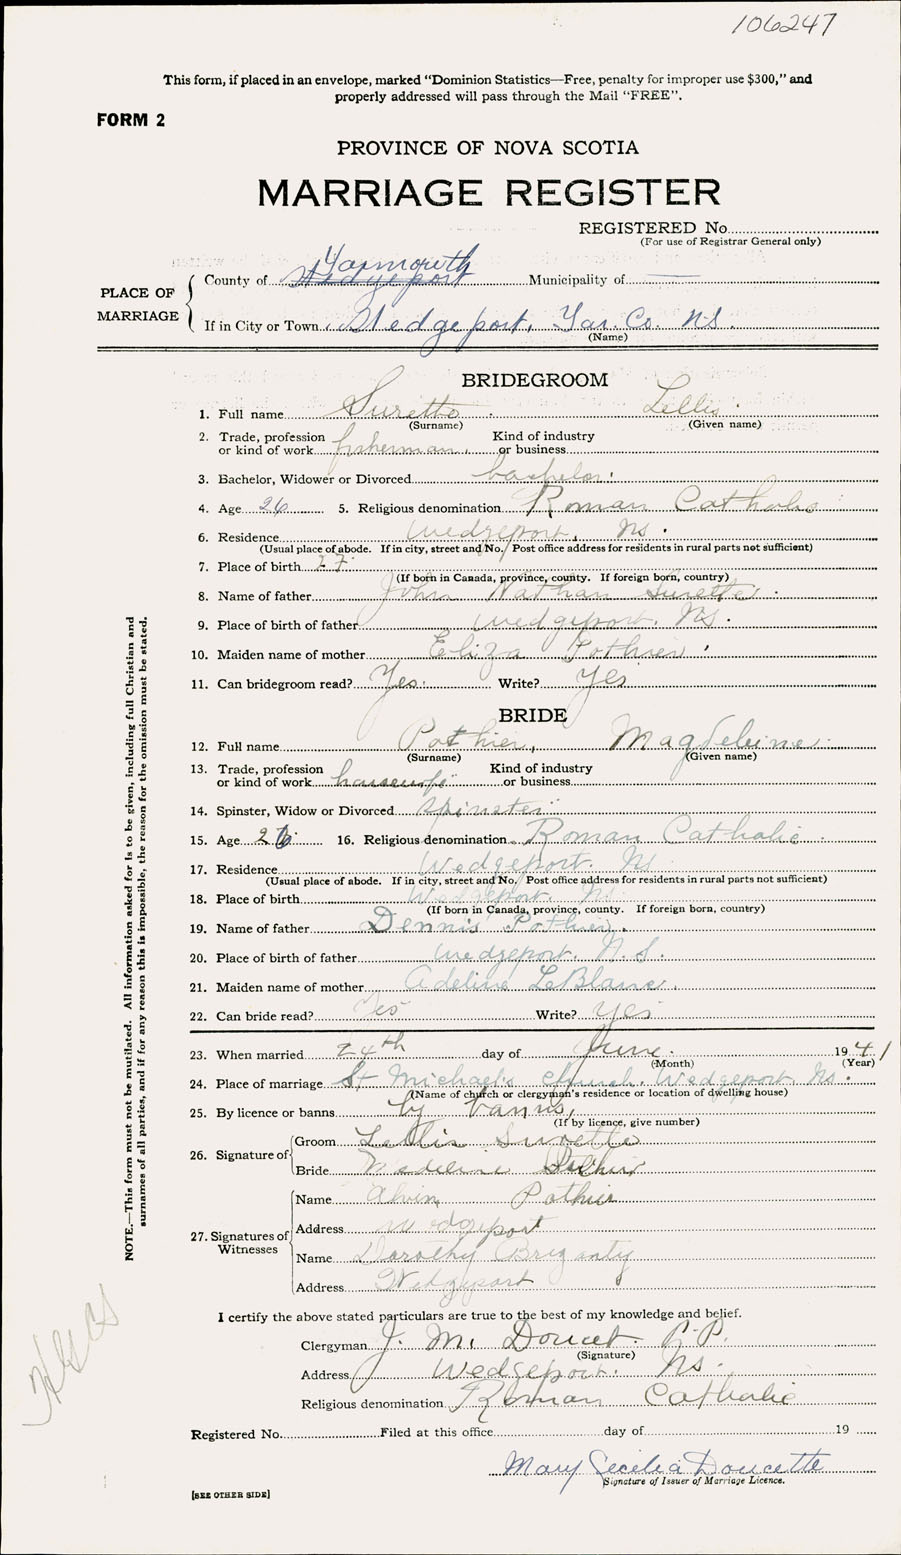 106247
This form, if placed in an envelope, marked “Dominion Statistics—Free, penalty for improper use $300,” and
properly addressed will pass through the Mail “FREE”.
FORM 2
PROVINCE OF NOVA SCOTIA
MARRIAGE REGISTER
REGISTERED No.
(For use of Registrar General only)
PLACE OF MARRIAGE
Yarmouth
County of Wedgeport Municipality of
If in City or Town Wedgeport, Yar. Co. N.S.
(Name)
BRIDEGROOM
1. Full name Surette Lellis
(Surname) (Given name)
2. Trade, profession or kind of work fisherman. Kind of industry or business
3. Bachelor, Widower or Divorced bachelor.
4. Age 26 5. Religious denomination Roman Catholic
6. Residence Wedgeport, Ns.
(Usual place of abode. If in city, street and No. Post office address for residents in rural parts not sufficient)
7. Place of birth 27
(If born in Canada, province, county. If foreign born, country)
8. Name of father John Nathan Surette.
9. Place of birth of father Wedgeport, Ns.
10. Maiden name of mother Eliza Pothier
11. Can bridegroom read? Yes. Write? Yes
BRIDE
12. Full name Pothier, Magdeleine
(Surname) (Given name)
13. Trade, profession or kind of work housewife Kind of industry or business
14. Spinster, Widow or Divorced spinster
15. Age 26 16. Religious denomination Roman Catholic
17. Residence Wedgeport, Ns
(Usual place of abode. If in city, street and No. Post office address for residents in rural parts not sufficient)
18. Place of birth Wedgeport, Ns.
(If born in Canada, province, county. If foreign born, country)
19. Name of father Dennis Pothier.
20. Place of birth of father Wedgeport. N.S.
21. Maiden name of mother Adeline LeBlanc.
22. Can bride read? Yes Write? Yes
23. When married 24th day of June. 1941
(Month) (Year)
24. Place of marriage St Michael's Church, Wedgeport, Ns.
(Name of church or clergyman's residence or location of dwelling house)
25. By licence or banns by banns,
(If by licence, give number)
26. Signature of
Groom Lellis Surette
Bride Madeline Pothier
27. Signatures of Witnesses
Name Alvin Pothier
Address Wedgeport
Name Dorothy
Address Wedgeport
I certify the above stated particulars are true to the best of my knowledge and belief.
Clergyman J. M. Doucet. P.P.
(Signature)
Address Wedgeport. Ns.
Religious denomination Roman Catholic
Registered No. Filed at this office day of 19
Mary Cecilia Doucette
Signature of Issuer of Marriage Licence.
[SEE OTHER SIDE]
NOTE.—This form must not be mutilated. All information asked for is to be given, including full Christian and
surnames of all parties, and if for any reason this is impossible, the reason for the omission must be stated.